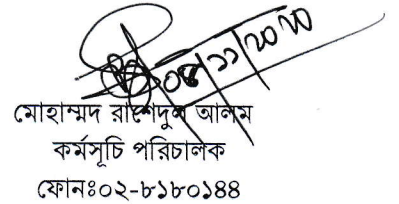 ০৪/১১/২০২০
মোহাম্মদ রাশেদুল আলম
কর্মসূচি পরিচালক
ফোনঃ০২-৮১৮০১৪৪